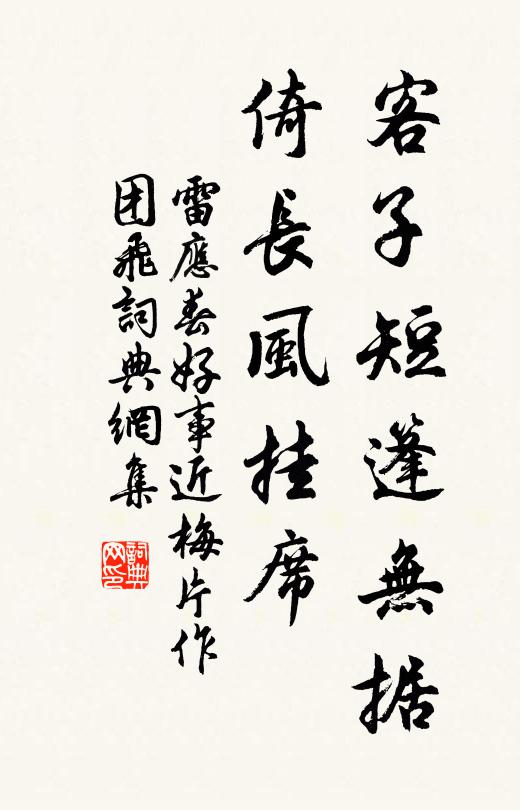 客子短篷無据
倚長風挂席
雷應春好事近梅片作
团飛詞典網集
詞典网印